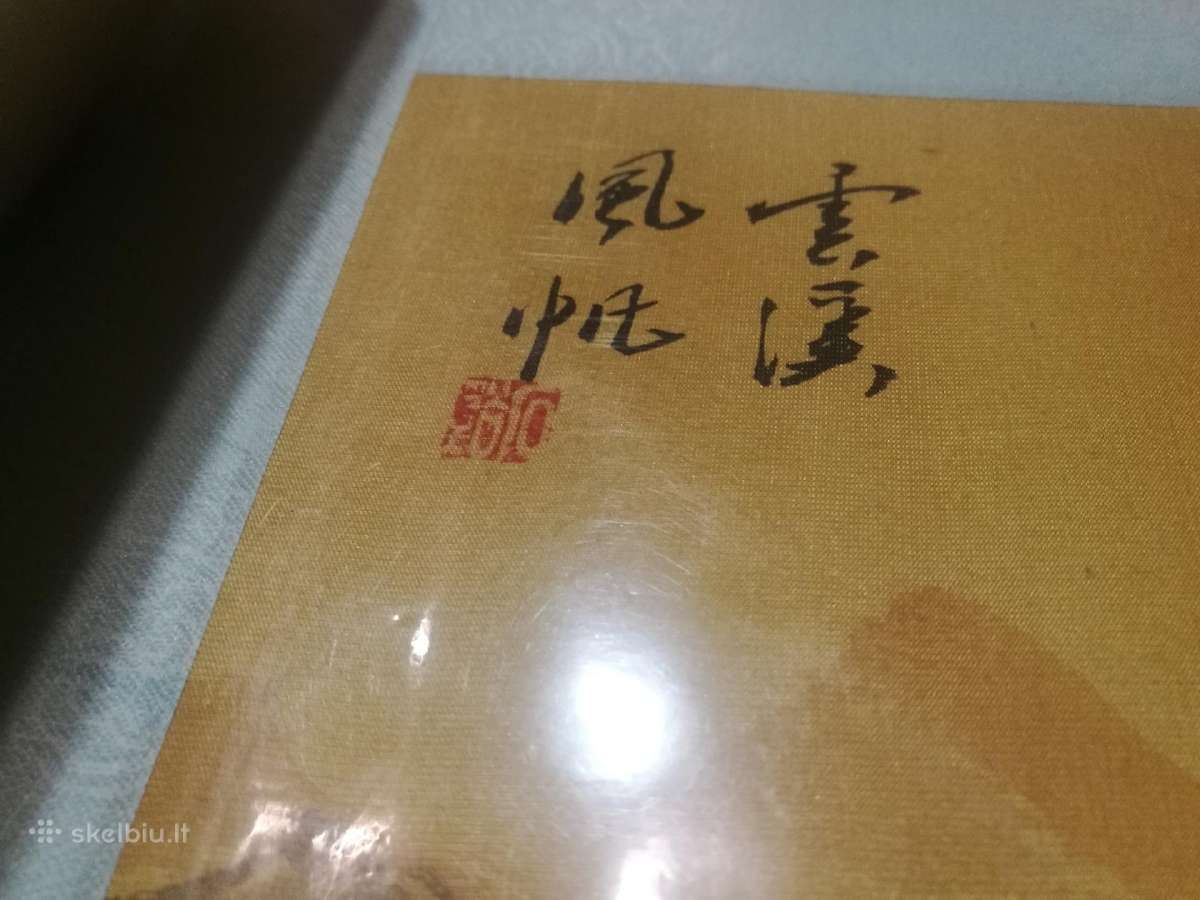 雲溪
風帆
skelbiu.lt